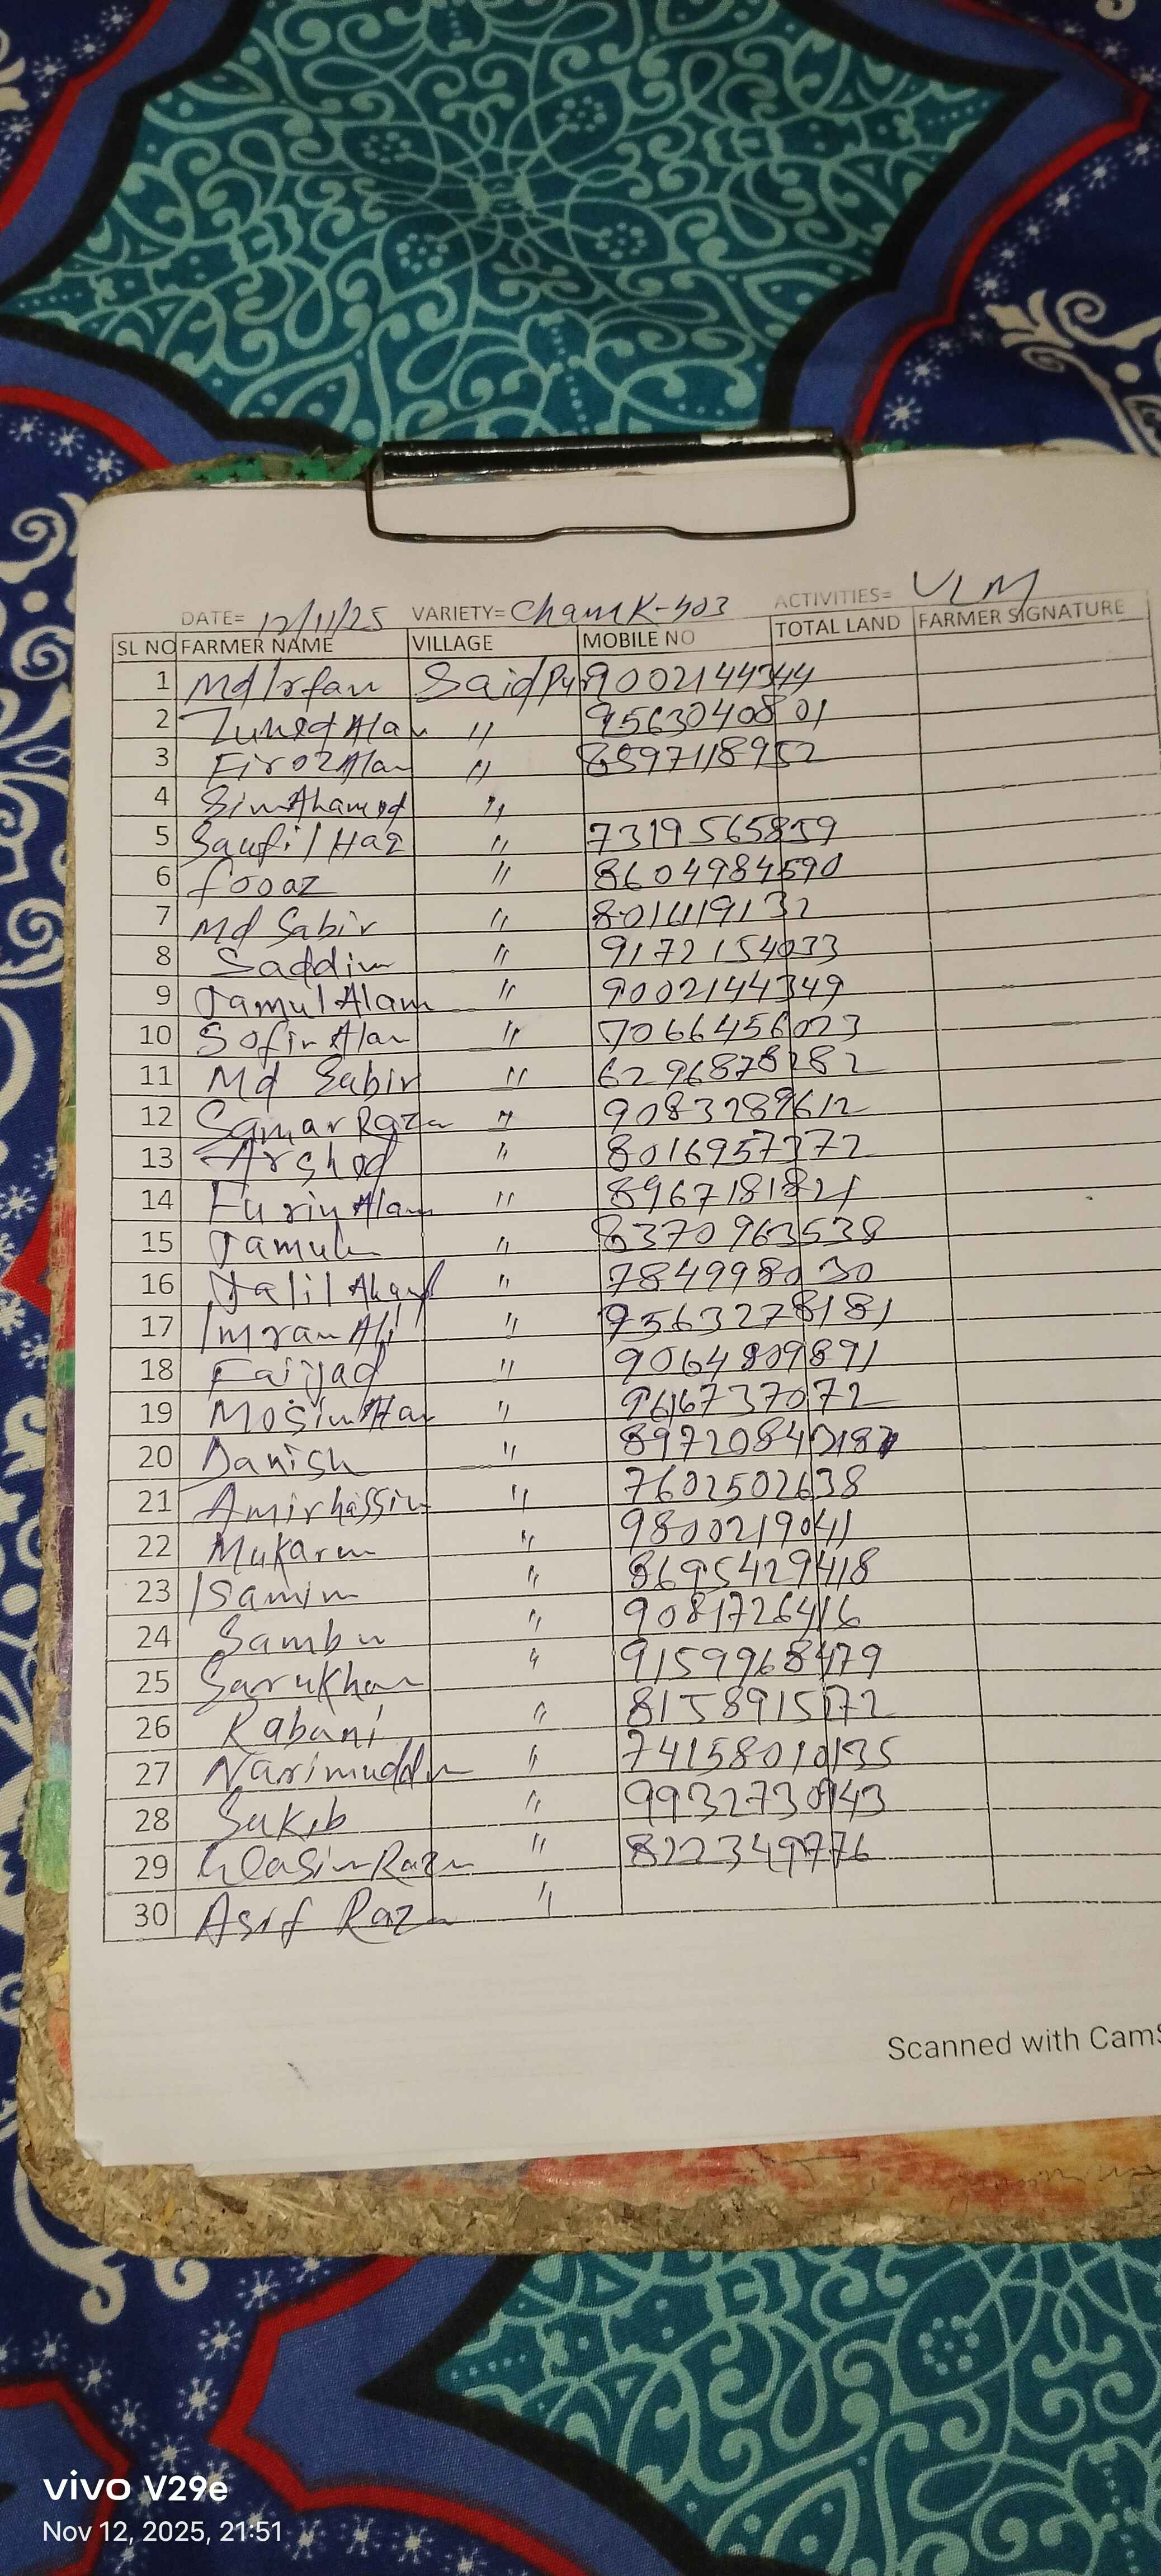 DATE= 12/11/25 VARIETY= ChamK-503 ACTIVITIES= VLM
SL NO FARMER NAME VILLAGE MOBILE NO TOTAL LAND FARMER SIGNATURE
1 Md Irfan SaidPur 9002144344
2 Zuned Alam " 9563040801
3 Firoz Alam " 8597118952
4 Sim Ahamed "
5 Saufil Haq " 7319565859
6 fooaz " 8604984590
7 Md Sabir " 8016119132
8 Saddim " 9172154033
9 Jamul Alam " 9002144349
10 Sofir Alam " 7066456023
11 Md Sabir " 6296878282
12 Samar Raza " 9083289612
13 Arshad " 8016957372
14 Alam " 8967181821
15 Jamul " 8370963538
16 Jalil " 784998030
17 Imran Ali " 9563278181
18 Faijad " 9064809891
19 Mosim " 9616737072
20 Danish "
21 Amirhassin " 7602502638
22 Mukarm " 9800219041
23 Samim " 8695429418
24 Sambu " 9081726416
25 Sarukhan " 9159968479
26 Rabani " 8158915172
27 Narimuddin " 74158010135
28 Sakib " 9932730943
29 Raza " 822349776
30 Asif Raza "
Scanned with CamS
vivo V29e
Nov 12, 2025, 21:51